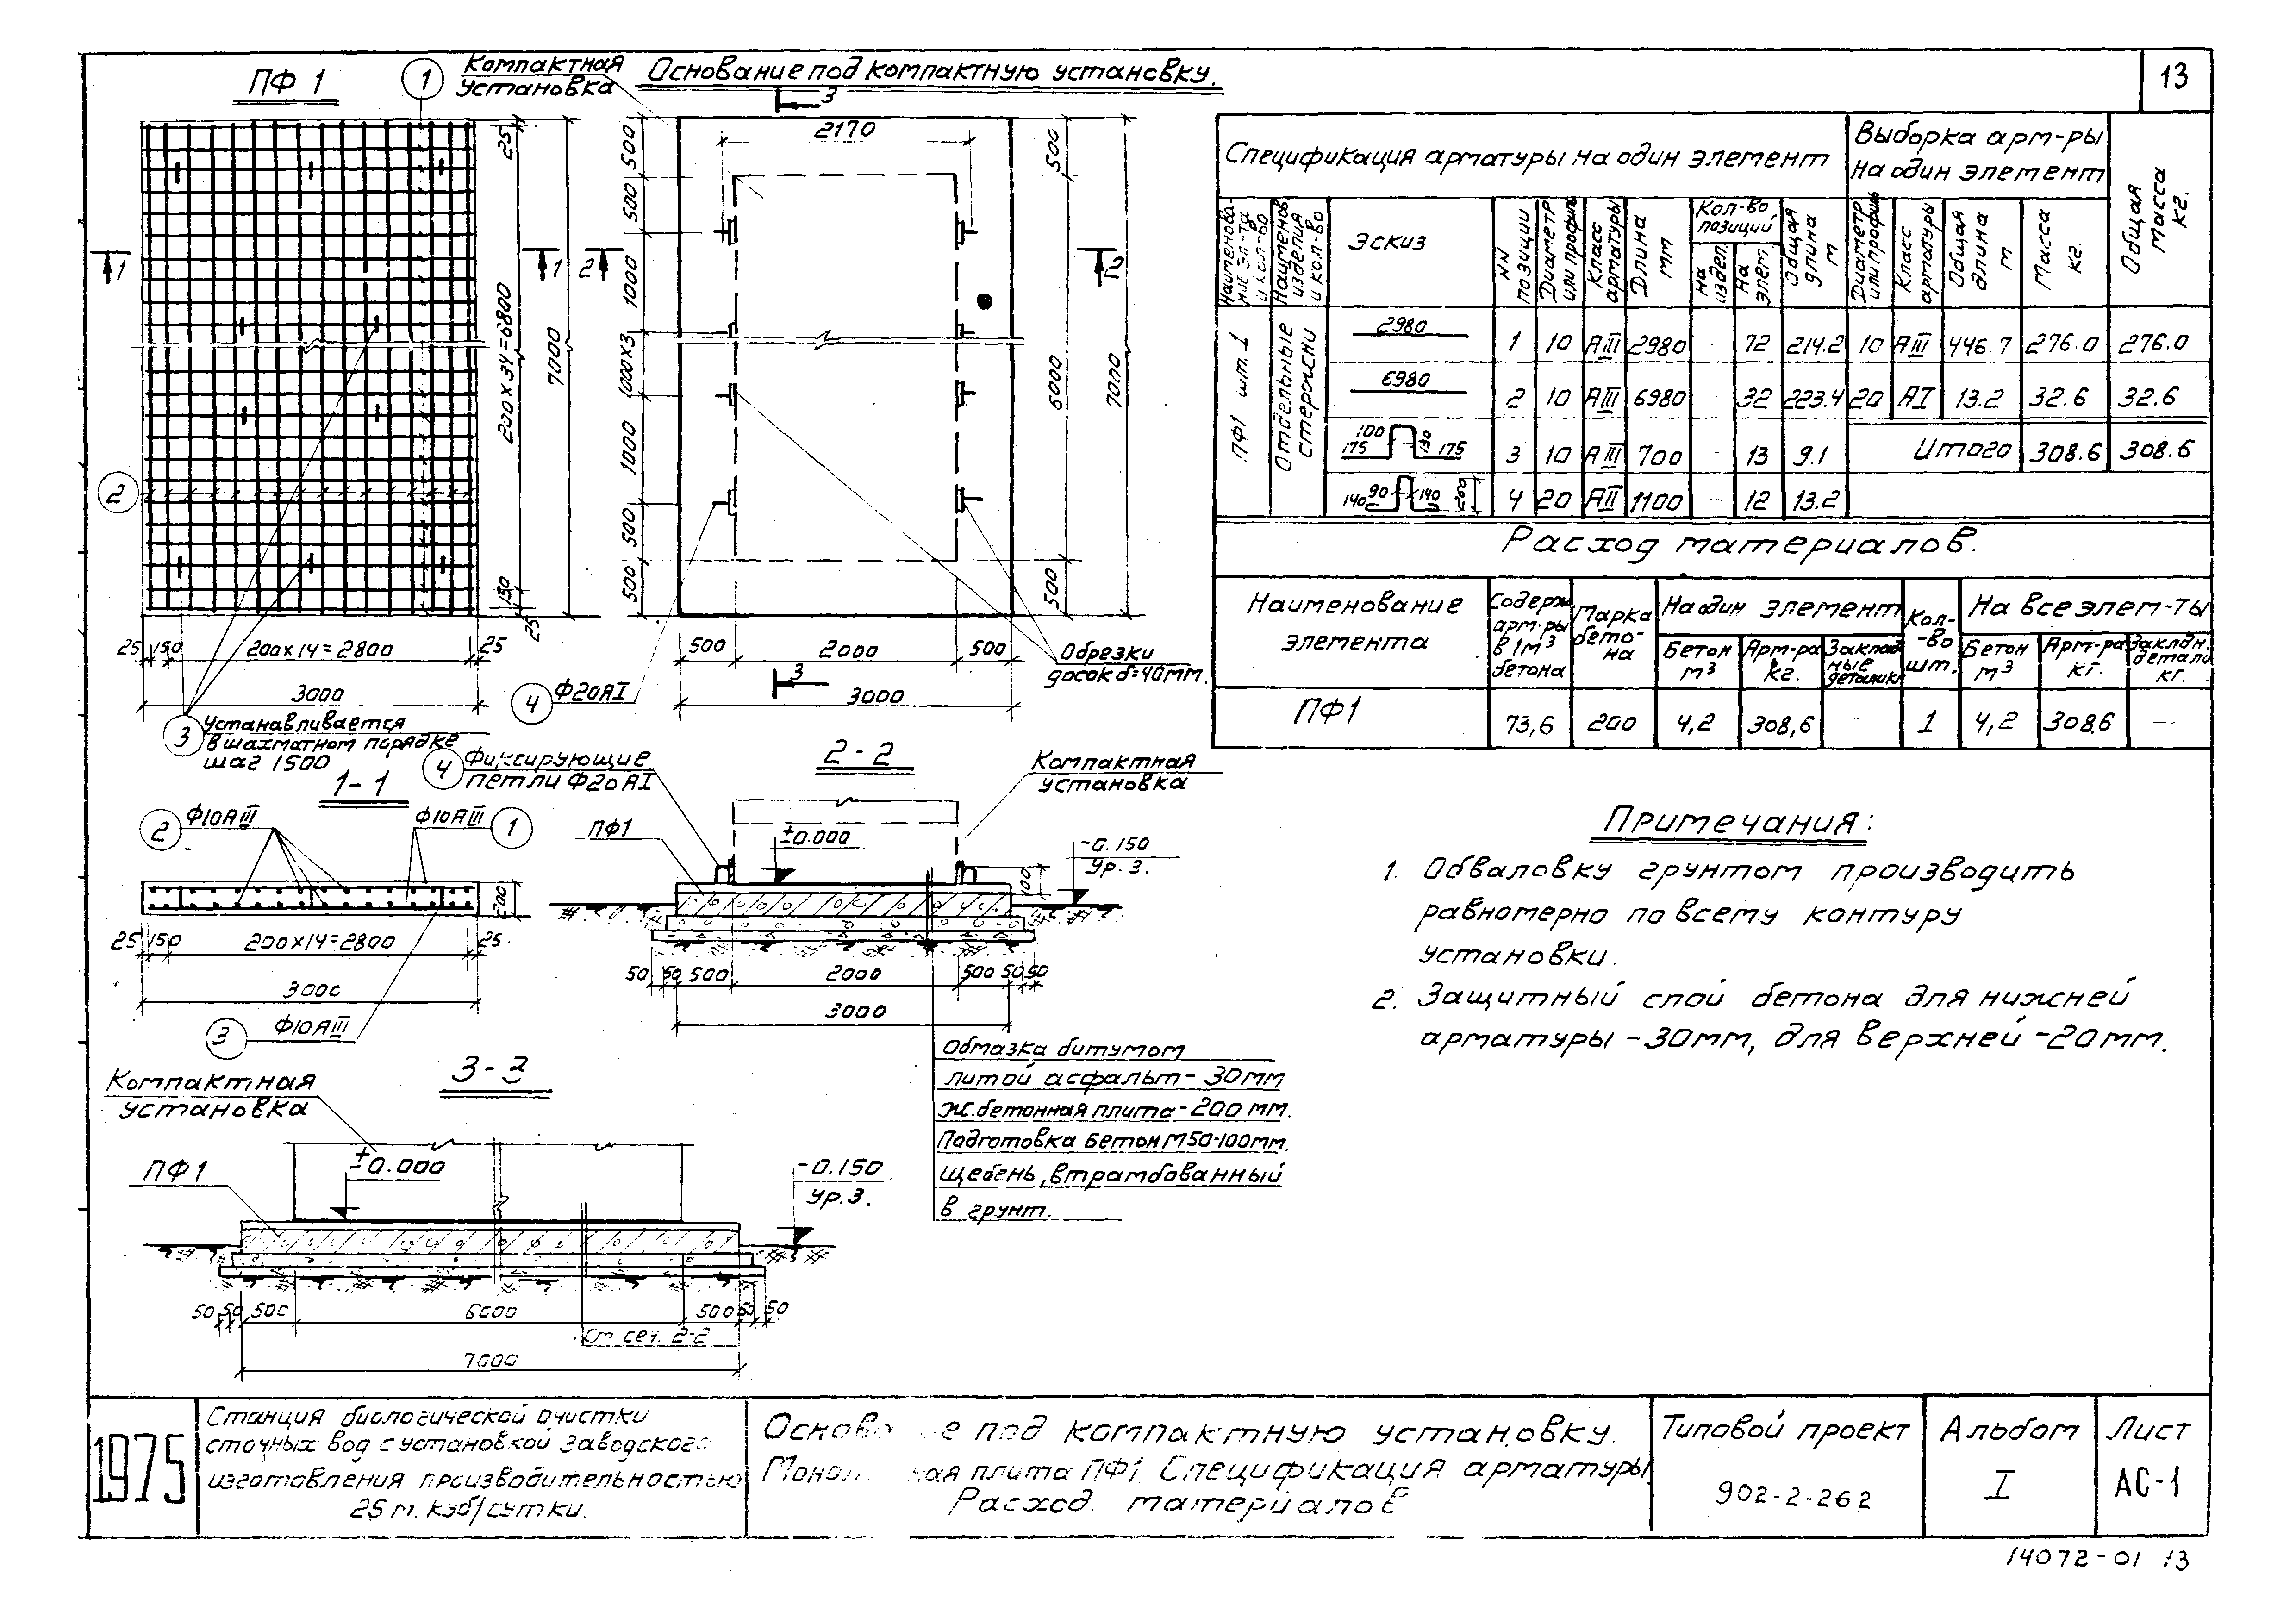 13
ПФ 1
1
Компактная
установка
Основание под компактную установку.
3
2170
500
500
1000
1000х3
1000
500
500
25
200 х 34 = 6800
7000
150
25
1
1
2
2
500
6000
7000
500
2
25
150
200х14=2800
25
3000
3
Устанавливается
в шахматном порядке
шаг 1500
500
2000
500
3
3000
4
Ф20АI
Обрезки
досок б=40мм.
1-1
2
Ф10АIII
Ф10АIII
1
200
25
150
200х14=2800
25
3000
3
Ф10АIII
2-2
4
Фиксирующие
петли Ф20АI
Компактная
установка
ПФ1
±0.000
-0.150
Ур.З.
100
50
50
500
2000
500
50
50
3000
Обмазка битумом
литой асфальт - 30мм
ж.бетонная плита-200 мм.
Подготовка бетон М50-100мм.
щебень, втрамбованный
в грунт.
3-3
Компактная
установка
ПФ1
±0.000
-0.150
Ур.З.
50
50
500
6000
500
50
50
См. сеч. 2-2
7000
Спецификация арматуры на один элемент
Выборка арм-ры
на один элемент
Общая
масса
кг.
Наименова-
ние эл-та
и кол-во
Наименов.
изделия
и кол-во
Эскиз
NN
позиции
Диаметр
или профиль
Класс
арматуры
Длина
мм
Кол-во
позиций
на
издел.
на
элем.
Общая
длина
м
Диаметр
или профиль
Класс
арматуры
Общая
длина
м
Масса
кг.
ПФ1 шт. 1
Отдельные
стержни
2980
1 10 АIII 2980 - 72 214.2 10 АIII 446.7 276.0 276.0
6980
2 10 АIII 6980 32 223.4 20 АI 13.2 32.6 32.6
100
175 130 175
3 10 АIII 700 - 13 9.1 Итого 308.6 308.6
140 90 140 260
4 20 АII 1100 - 12 13.2
Расход материалов.
Наименование
элемента
Содерж.
арм-ры
в 1м³
бетона
Марка
бето-
на
На один элемент
Бетон
м³
Арм-ра
кг.
Заклад
ные
детали кг
Кол-
-во
шт.
На все элем-ты
Бетон
м³
Арм-ра
кг.
Закладн.
детали
кг.
ПФ1 73,6 200 4,2 308,6 — 1 4,2 308.6 —
Примечания:
1. Обваловку грунтом производить
равномерно по всему контуру
установки.
2. Защитный слой бетона для нижней
арматуры -30мм, для верхней -20мм.
1975
Станция биологической очистки
сточных вод с установкой заводского
изготовления производительностью
25 м. куб/сутки.
Основа е под компактную установку.
Моно ная плита ПФ1. Спецификация арматуры
Расход материалов
Типовой проект
902-2-262
Альбом
I
Лист
АС-1
14072-01 13